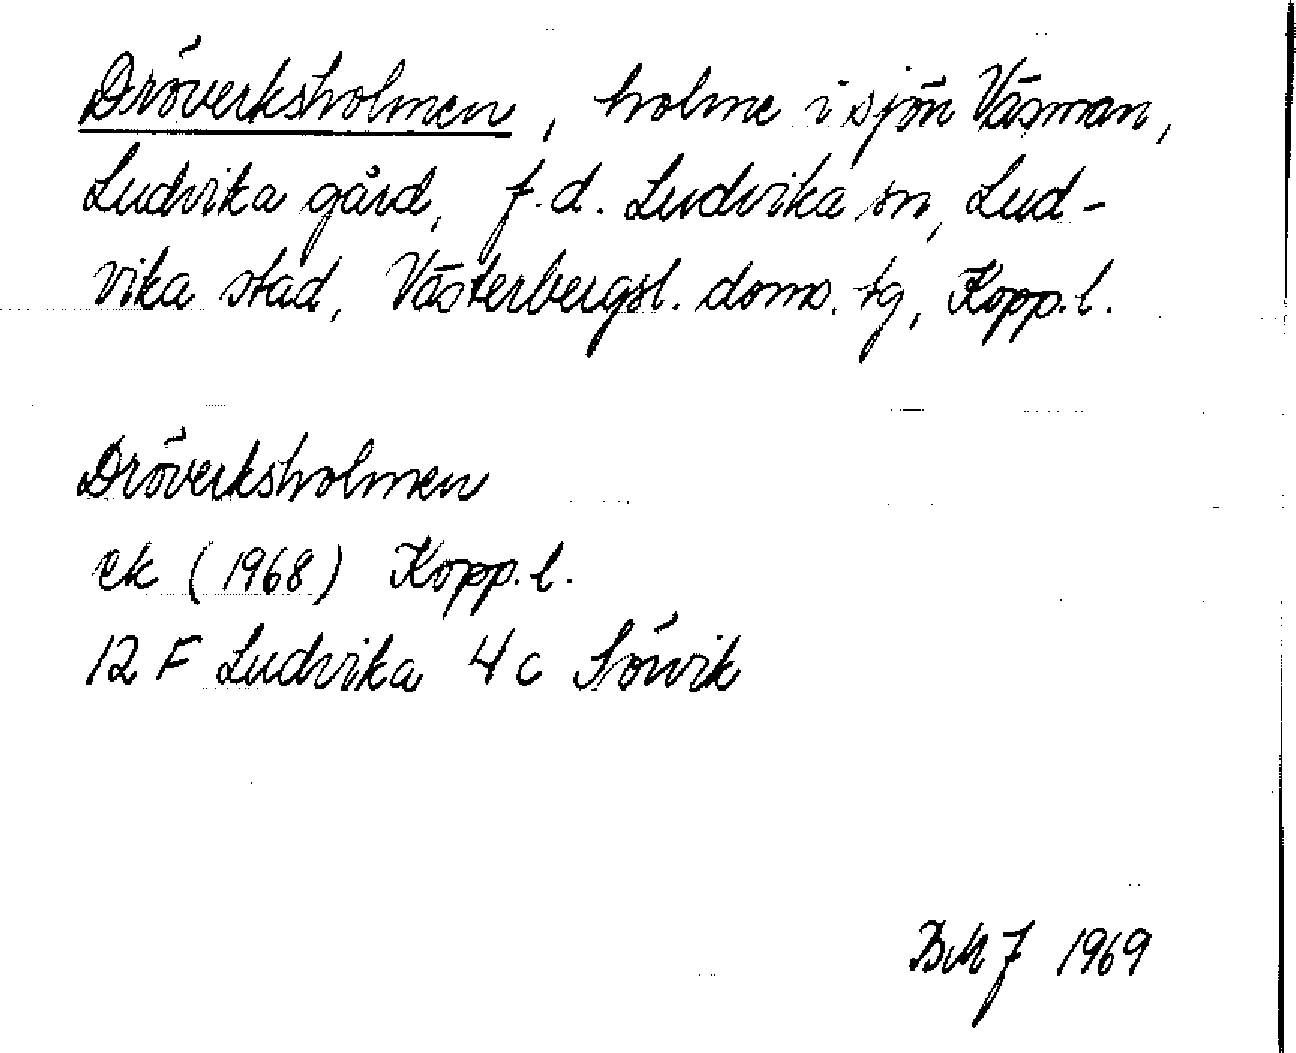 Dröverksholmen, holme i sjön Väsman,
Ludvika gård, f.d. Ludvika sn, Lud-
vika stad, Västerbergsl. doms. tg, Kopp. l.
Dröverksholmen
ek (1968) Kopp. l.
12 F Ludvika 4 c Sörvik
BMJ 1969